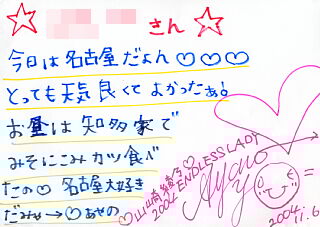 ☆ さん ☆
今日は名古屋だよん♡♡♡
とっても天気良くてよかったぁ!
お昼は知多家で
みそにこみカツ食べ
たの♡名古屋大好き
だみゃ→♡あやの
♡山崎綾乃♡
2004 ENDLESS LADY
Ayano
2004.11.6